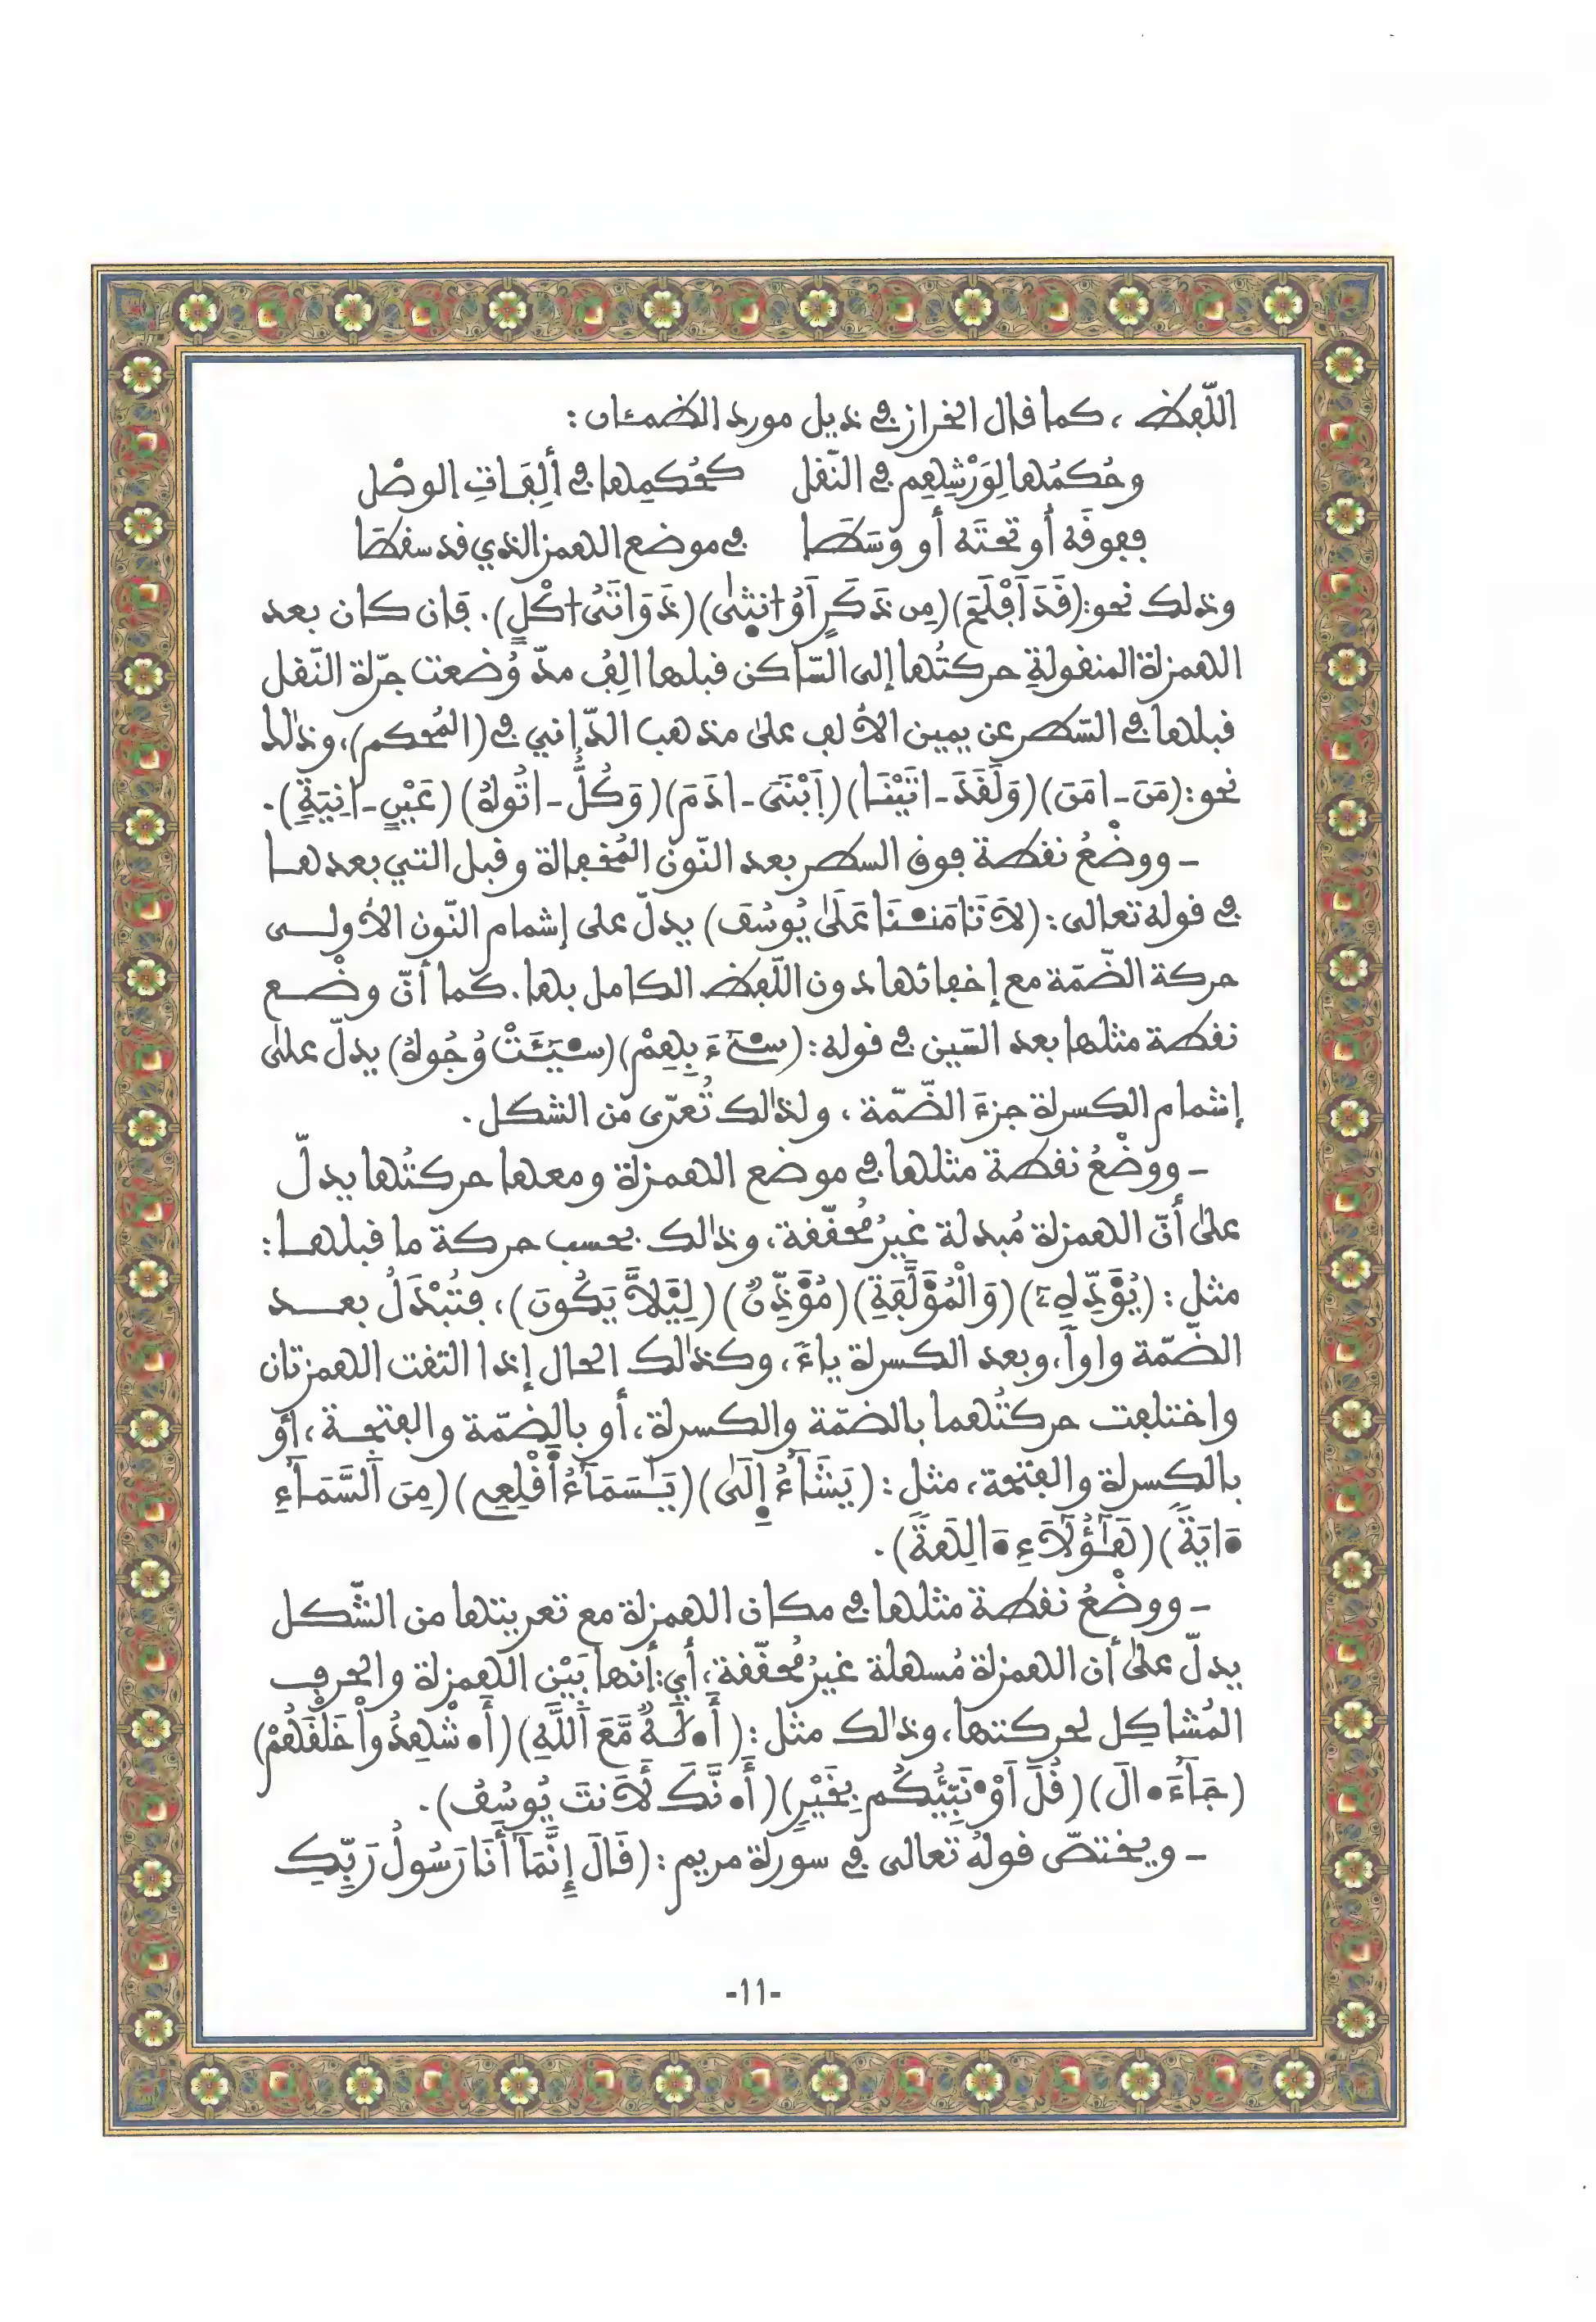 اللّفظ ، كما قال الخراز في ذيل مورد الظمئان :
وحُكمُها لِوَرْشِهِم في النّقل كحُكمِها في ألِفَاتِ الوصْل
ففوقَه أو تحتَه أو وَسَطَا في موضع الهمز الذي قد سقطَا
وذلك نحو: (قَدَ اَفْلَحَ) (مِن ذَكَرٍ اَوُ ا۟نثِىٰ) (ذَوَاتَىُ ا۟كْلٍ). فإن كان بعد
الهمزة المنقولةِ حركتُها إلى السّاكن قبلها ألِفُ مدّ وُضعت جرّة النّقل
قبلها في السّطر عن يمين الألف علىٰ مذهب الدّاني في (المُحكم)، وذٰلك
نحو: (مَنَ ـ امَنَ) (وَلَقَدَ ـ اتَيْنَا) (اَبْنَىَ ـ ادَمَ) (وَكُلُّ ـ اتُوهُ) (عَيْنٍ ـ انِيَةٍ).
ـ ووضْعُ نقطة فوق السطر بعد النّون المُخفاة وقبل التي بعدها
في قوله تعالى: (لاَ تَامَنـ۬نَا عَلَىٰ يُوسُفَ) يدلّ على إشمام النّون الأولـى
حركة الضّمّة مع إخفائها دون اللّفظ الكامل بها. كما أنّ وضْـع
نقطة مثلها بعد السّين في قوله: (سـ۬ىٓءَ بِهِمْ) (سـ۬يـَٔتْ وُجُوهُ) يدلّ علىٰ
إشمام الكسرة جزءَ الضّمّة ، ولذٰلك تُعرّى من الشكل.
ـ ووَضْعُ نقطة مثلها في موضع الهمزة ومعها حركتُها يدلّ
علىٰ أنّ الهمزة مُبدلة غيرُ مُحقّقة، وذٰلك بحسب حركة ما قبلها:
مثل: (يُوَ۬دِّهِۦٓ) (وَالْمُوَ۬لَّفَةِ) (مُوَ۬ذِّنٌ) (لِيَ۬لاَّ يَكُونَ)، فتُبْدَلُ بعـد
الضّمّة واواً، وبعد الكسرة ياءً، وكذٰلك الحال إذا التقت الهمزتان
واختلفت حركتُهما بالضمّة والكسرة، أو بالضمّة والفتحـة، أو
بالكسرة والفتحة، مثل: (يَشَآءُ اِ۬لَىٰ) (يَٰسَمَآءُ اَ۬قْلِعِے) (مِنَ اَ۬لسَّمَآءِ
ءَ۬ايَةً) (هَٰٓؤُلَآءِ ءَ۬الِهَةً).
ـ ووضْعُ نقطة مثلها في مكان الهمزة مع تعريتها من الشّكل
يدلّ علىٰ أن الهمزة مُسهلة غيرُ مُحقّقة، أي: أنها بَيْن الهمزة والحرف
المُشاكِل لحركتها، وذٰلك مثل: (أَ۬لَٰهٌ مَّعَ اَ۬للَّهِ) (أَ۬شْهِدُواْ خَلْقَهُمْ)
(جَآءَ ا۬لَ) (قُلَ اَوْ۬نَبِّيُكُم بِخَيْرٍ) (أَ۬نَّكَ لَأَنتَ يُوسُفُ).
ـ ويختصّ قولهُ تعالى في سورة مريم: (قَالَ إِنَّمَآ أَنَا رَسُولُ رَبِّكِ
-11-